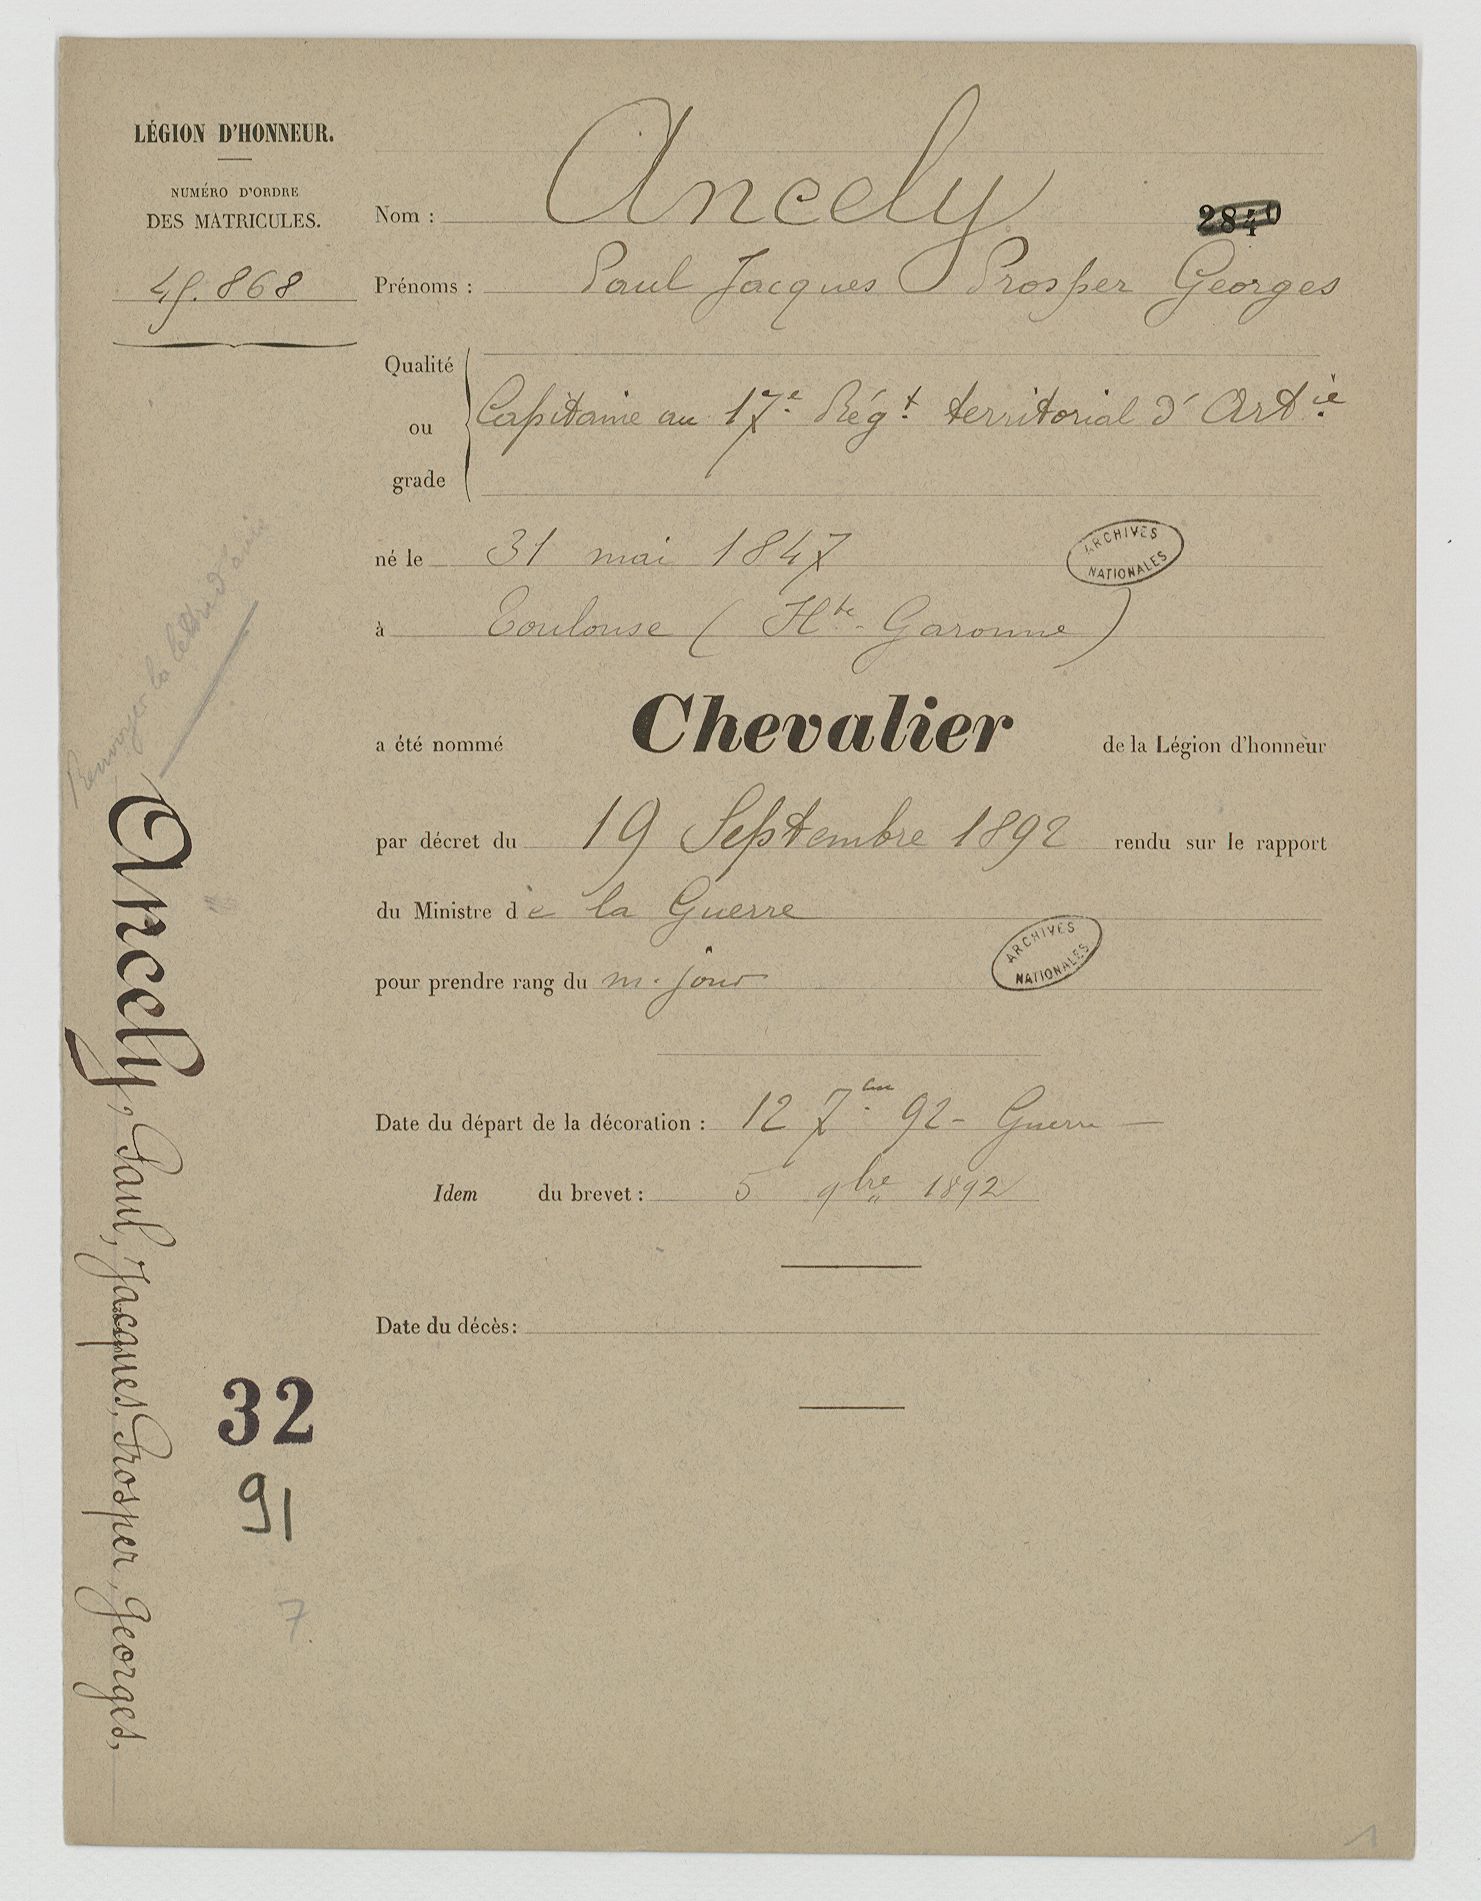 LÉGION D'HONNEUR.
NUMÉRO D'ORDRE
DES MATRICULES.
45.868
Nom : Ancely
2840
Prénoms : Paul Jacques Prosper Georges
Qualité
ou
grade
Capitaine au 17e Régt territorial d'Artie
né le 31 mai 1847
ARCHIVES
NATIONALES
à Toulouse (Hte-Garonne)
a été nommé Chevalier de la Légion d'honneur
par décret du 19 Septembre 1892 rendu sur le rapport
du Ministre de la Guerre
pour prendre rang du m. jour
ARCHIVES
NATIONALES
Date du départ de la décoration : 12 7bre 92 - Guerre
Idem du brevet : 5 9bre 1892
Date du décès :
Renvoyer la lettre d'avis
Ancely, Paul, Jacques, Prosper, Georges,
32
91
7.
1